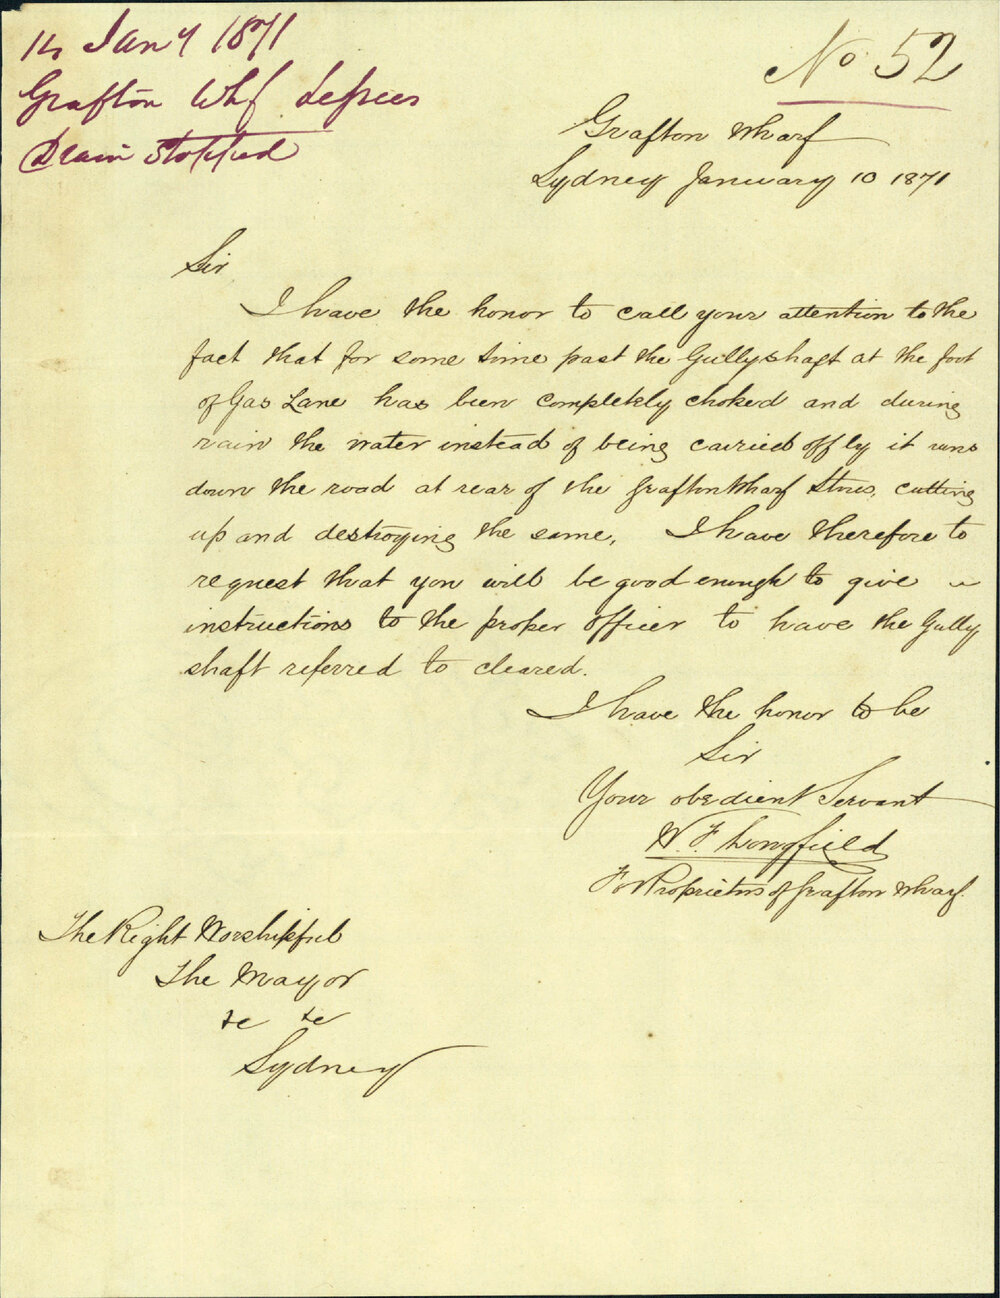 14 Jany 1871
Grafton Whf
Drain Stopped
No 52
Grafton Wharf
Sydney January 10 1871
Sir
I have the honor to call your attention to the
fact that for some time past the Gullyshaft at the foot
of Gas Lane has been completely choked and during
rain the water instead of being carried off by it runs
down the road at rear of the Grafton Wharf Stores, cutting
up and destroying the same. I have therefore to
request that you will be good enough to give
instructions to the proper officer to have the Gully
shaft referred to cleared.
I have the honor to be
Sir
Your obedient Servant
W. F. Longfield
For Proprietors of Grafton Wharf.
The Right Worshipful
The Mayor
&c &c
Sydney